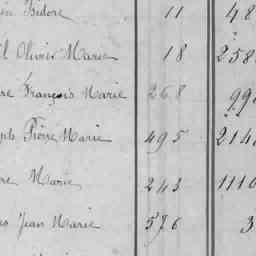 Isidore 11 48
Olivier Marie 18 258
François Marie 268 99
Pierre Marie 495 214
Marie 243 1110
Jean Marie 576 3